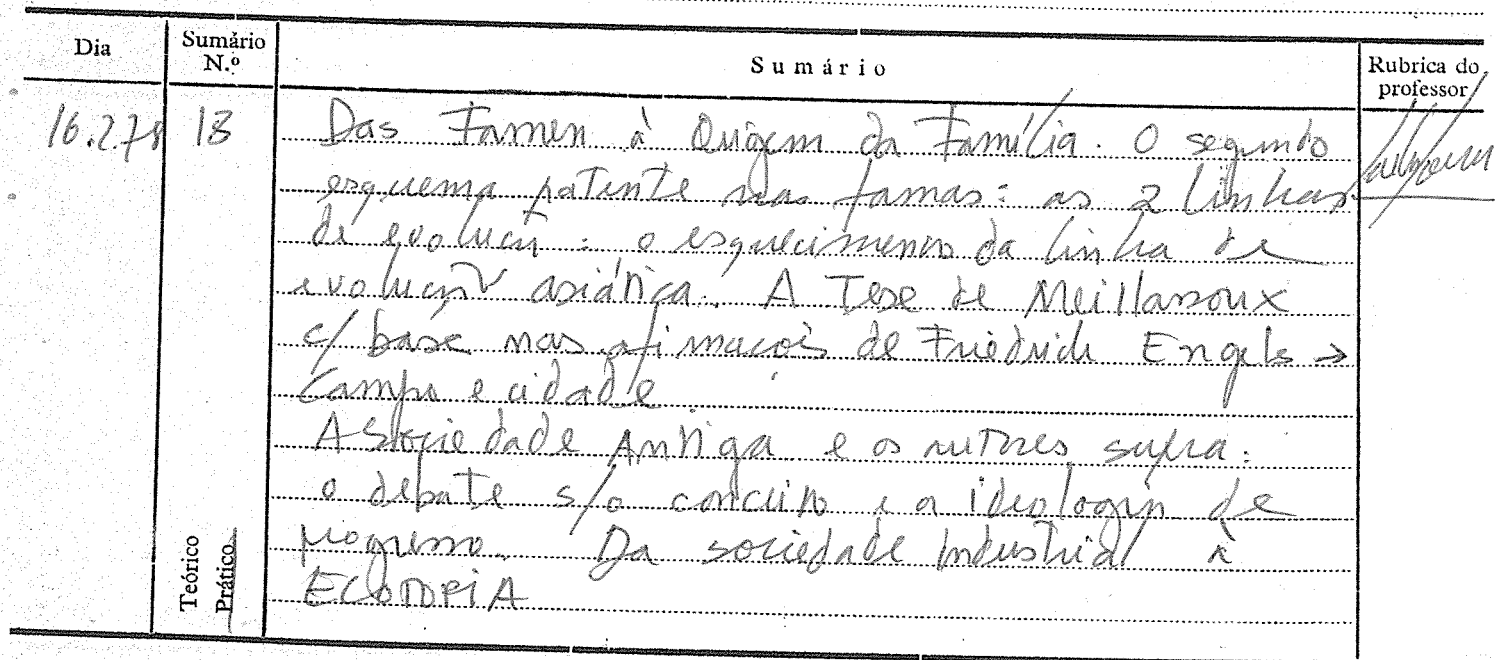 Dia
Sumário N.º
Sumário
Rubrica do professor
16.2.78
13
Das Formen à Origem da Família. O segundo
esquema patente nas formas: as 2 linhas
de evolução: o esquecimento da linha de
evolução asiática. A Tese de Meillassoux
c/ base nas afirmações de Friedrich Engels →
Campo e cidade.
A Sociedade Antiga e os autores supra:
o debate s/o conceito e a ideologia de
progresso. Da sociedade industrial à
ECOTOPIA
Teórico
Prático